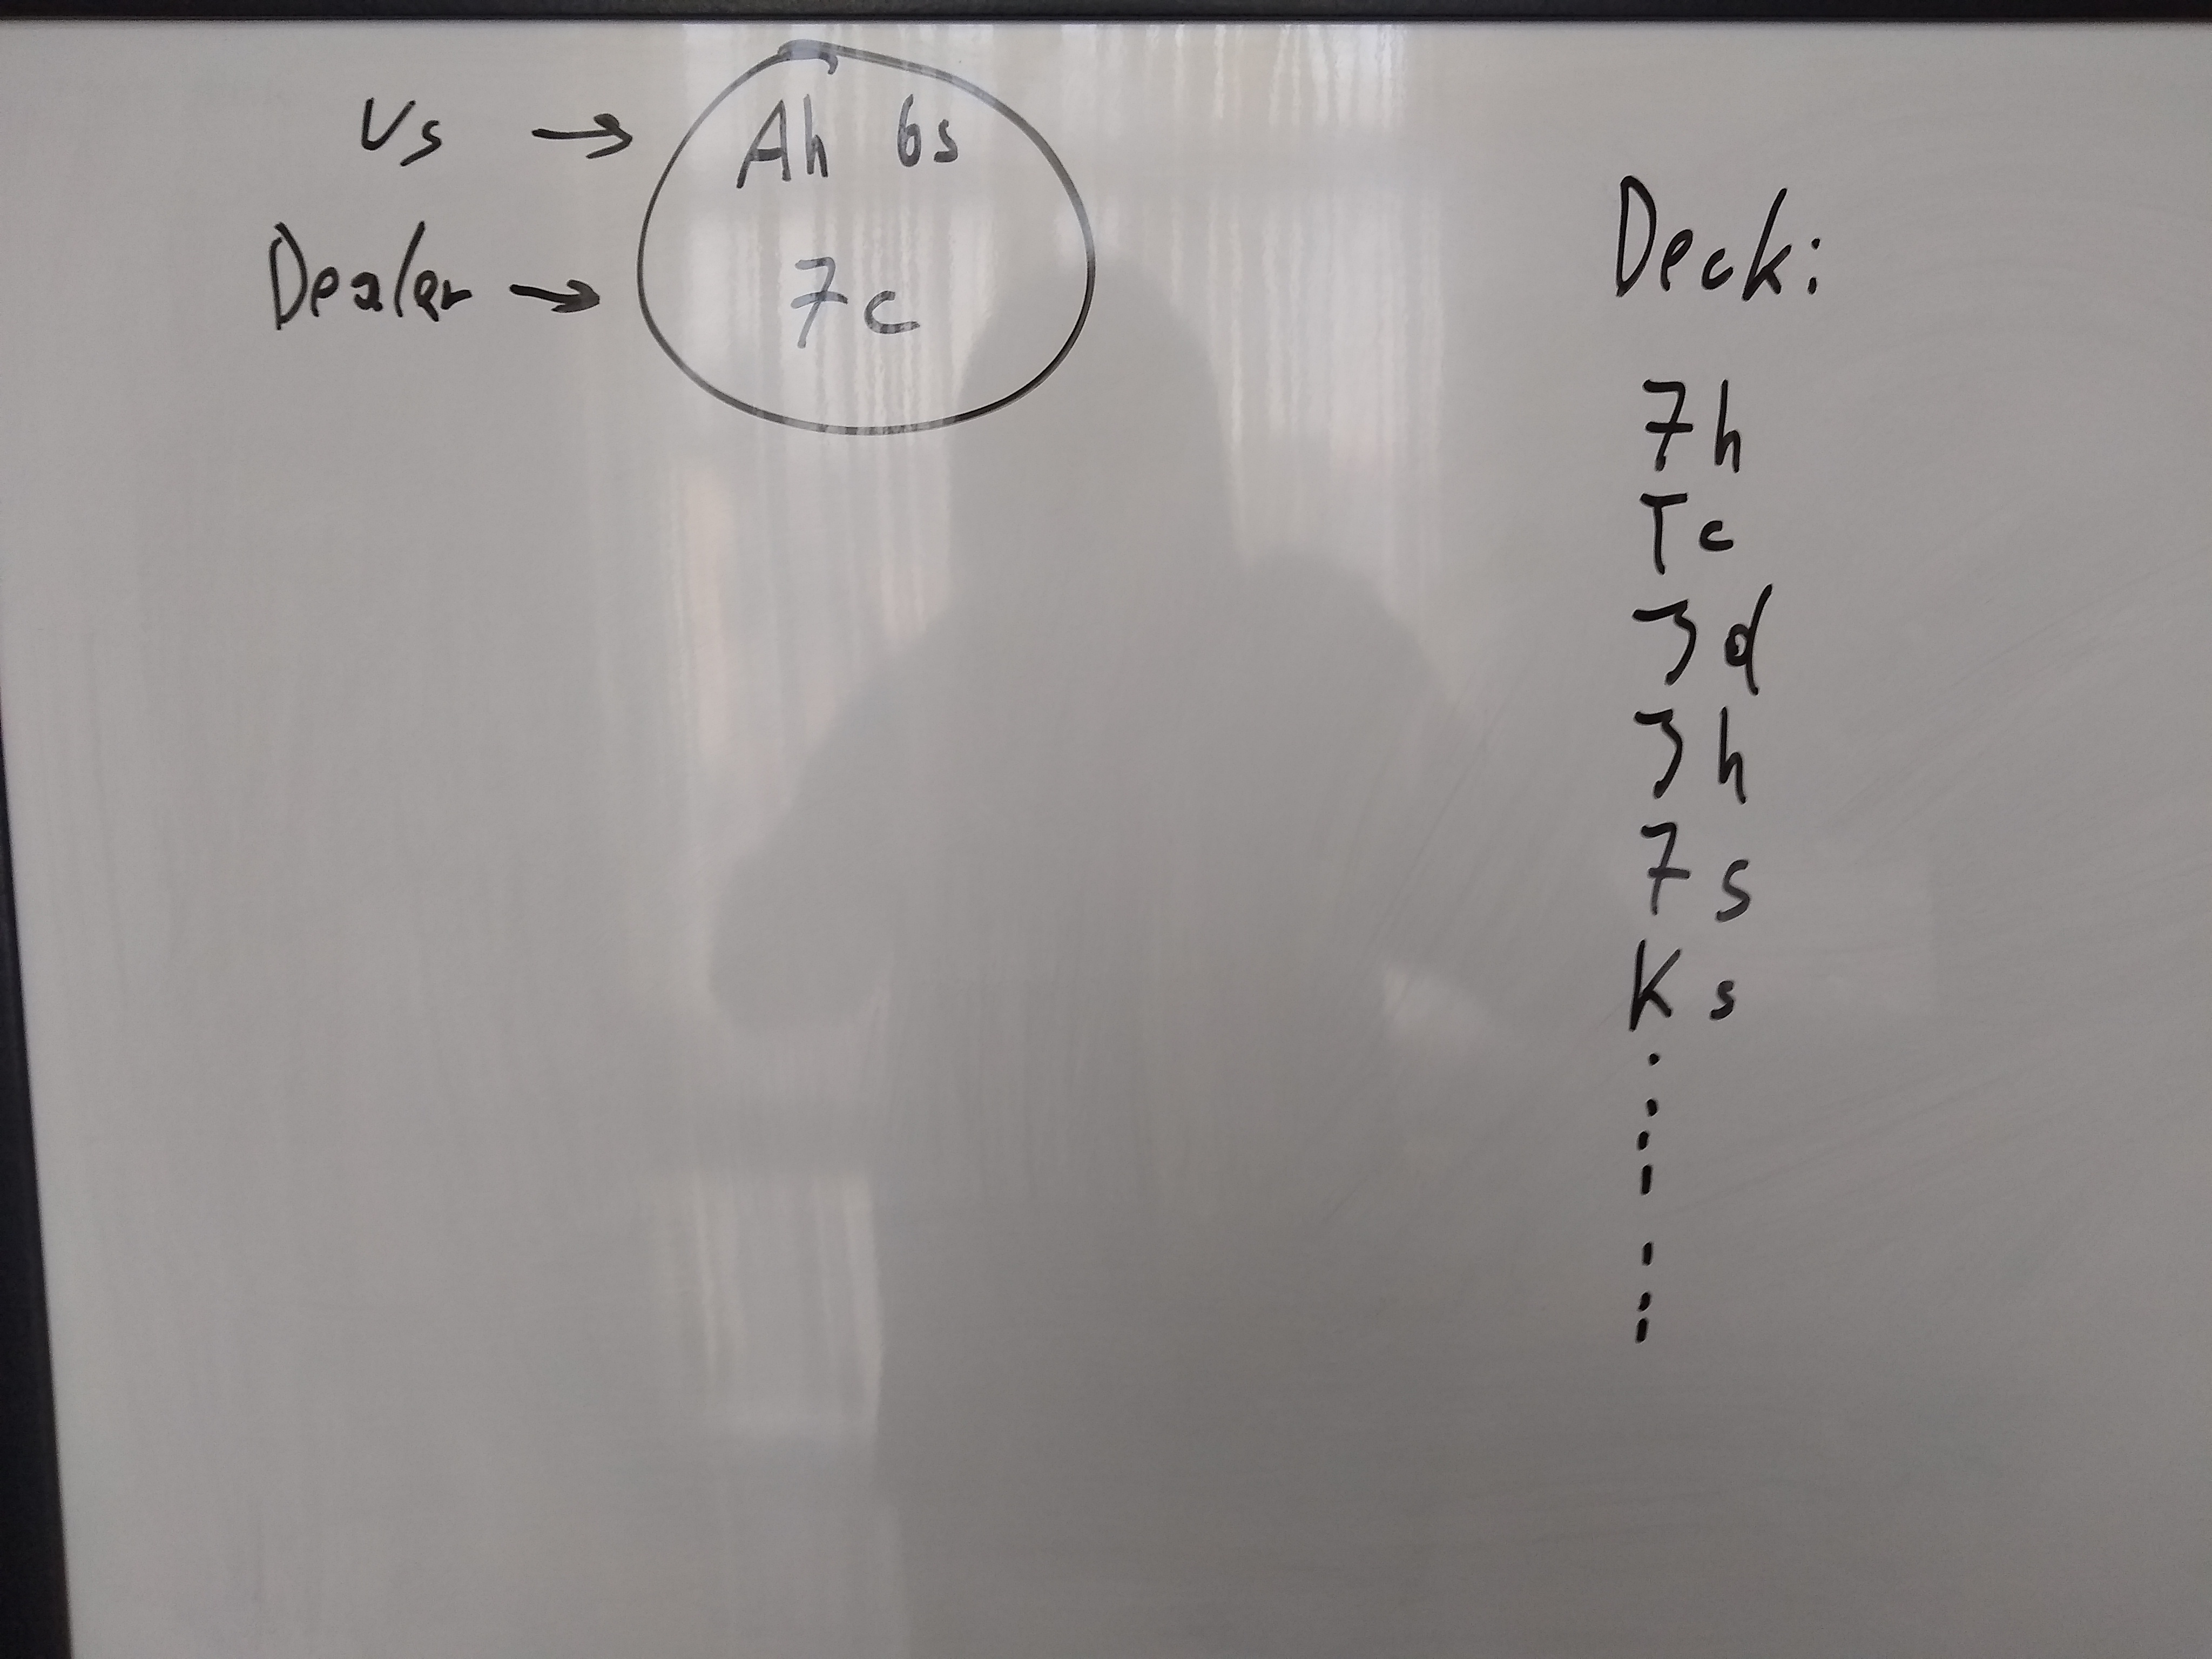 Us → Ah 6s
Dealer → 7c
Deck:
7h
Tc
3d
3h
7s
Ks